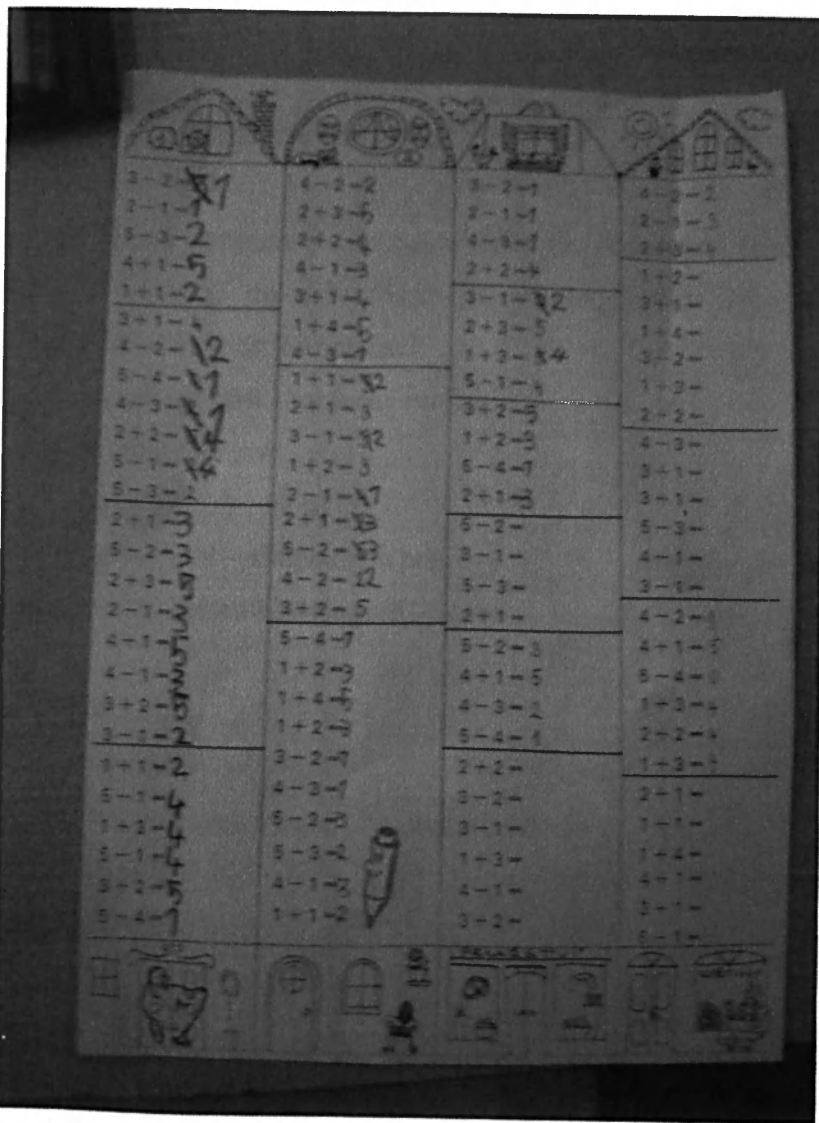 3-2=1
2-1=1
5-3=2
4+1=5
1+1=2
3+1=
4-2=2
5-4=1
4-3=1
2+2=4
5-1=4
5-3=2
2+1=3
5-2=3
2+3=5
2-1=
4+1=5
4-1=3
3+2=5
3-1=2
1+1=2
5-1=4
1+3=4
5-1=4
3+2=5
5-4=1
4-2=2
2+3=5
2+2=4
4-1=3
3+1=4
1+4=5
4-3=1
1+1=2
2+1=3
3-1=2
1+2=3
2-1=1
2+1=3
5-2=3
4-2=2
3+2=5
5-4=1
1+2=3
1+4=5
1+2=3
3-2=1
4-3=1
5-2=3
5-3=2
4-1=3
1+1=2
3-2=1
2-1=1
4-3=1
2+2=4
3-1=2
2+3=5
1+3=4
5-1=4
3+2=5
1+2=3
5-4=1
2+1=3
5-2=
3-1=
5-3=
2+1=
5-2=3
4+1=5
4-3=
5-4=
2+2=
3-2=
3-1=
1+3=
4-1=
3+2=
4-2=2
2+3=5
1+2=
3+1=
1+4=
3-2=
1+3=
2+2=
4-3=
3+1=
3+1=
5-3=
4-1=
3-1=
4-2=
4+1=5
5-4=
1+3=4
2+2=4
1+3=
2+1=
1-1=
1+4=
4+1=
3+1=
5-1=